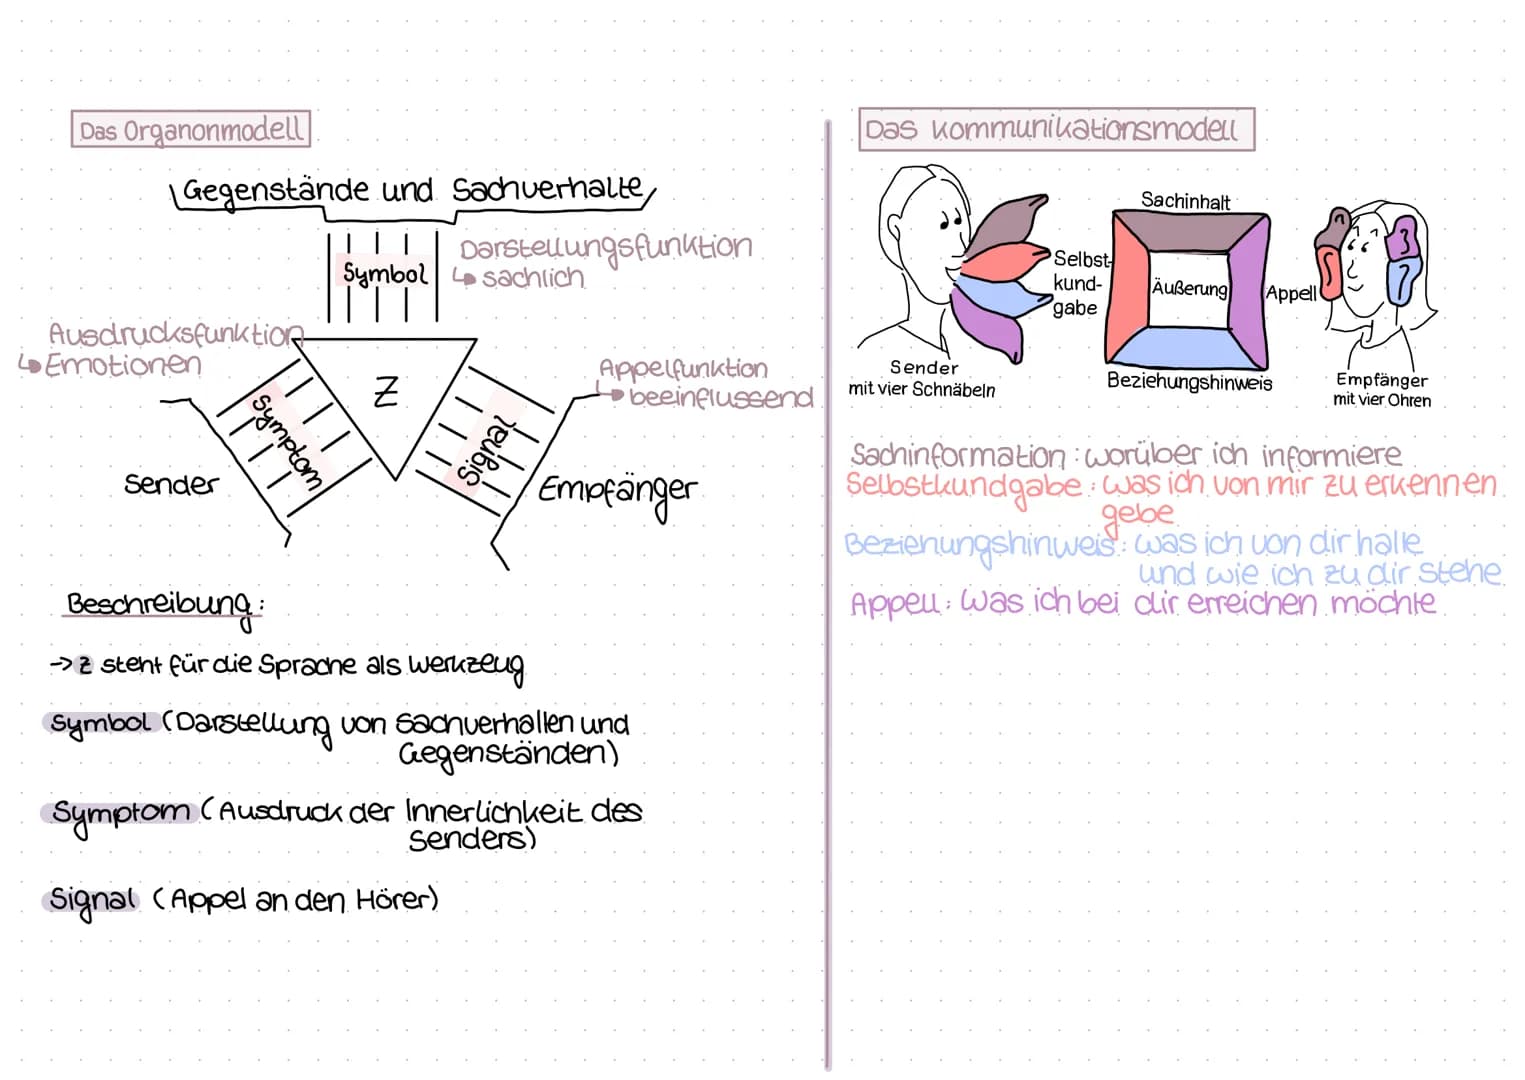 Das Organonmodell
Gegenstände und Sachverhalte
Symbol
Darstellungsfunktion
↳ sachlich
Ausdrucksfunktion
↳ Emotionen
Z
Appelfunktion
↳ beeinflussend
Symptom
Signal
Sender
Empfänger
Beschreibung:
-> Z steht für die Sprache als Werkzeug
Symbol (Darstellung von Sachverhalten und
Gegenständen)
Symptom (Ausdruck der Innerlichkeit des
Senders)
Signal (Appel an den Hörer)
Das Kommunikationsmodell
Sachinhalt
Selbst-
kund-
gabe
Äußerung
Appell
Beziehungshinweis
Sender
mit vier Schnäbeln
Empfänger
mit vier Ohren
Sachinformation: worüber ich informiere
Selbstkundgabe: was ich von mir zu erkennen
gebe
Beziehungshinweis: was ich von dir halte
und wie ich zu dir stehe
Appell: Was ich bei dir erreichen möchte